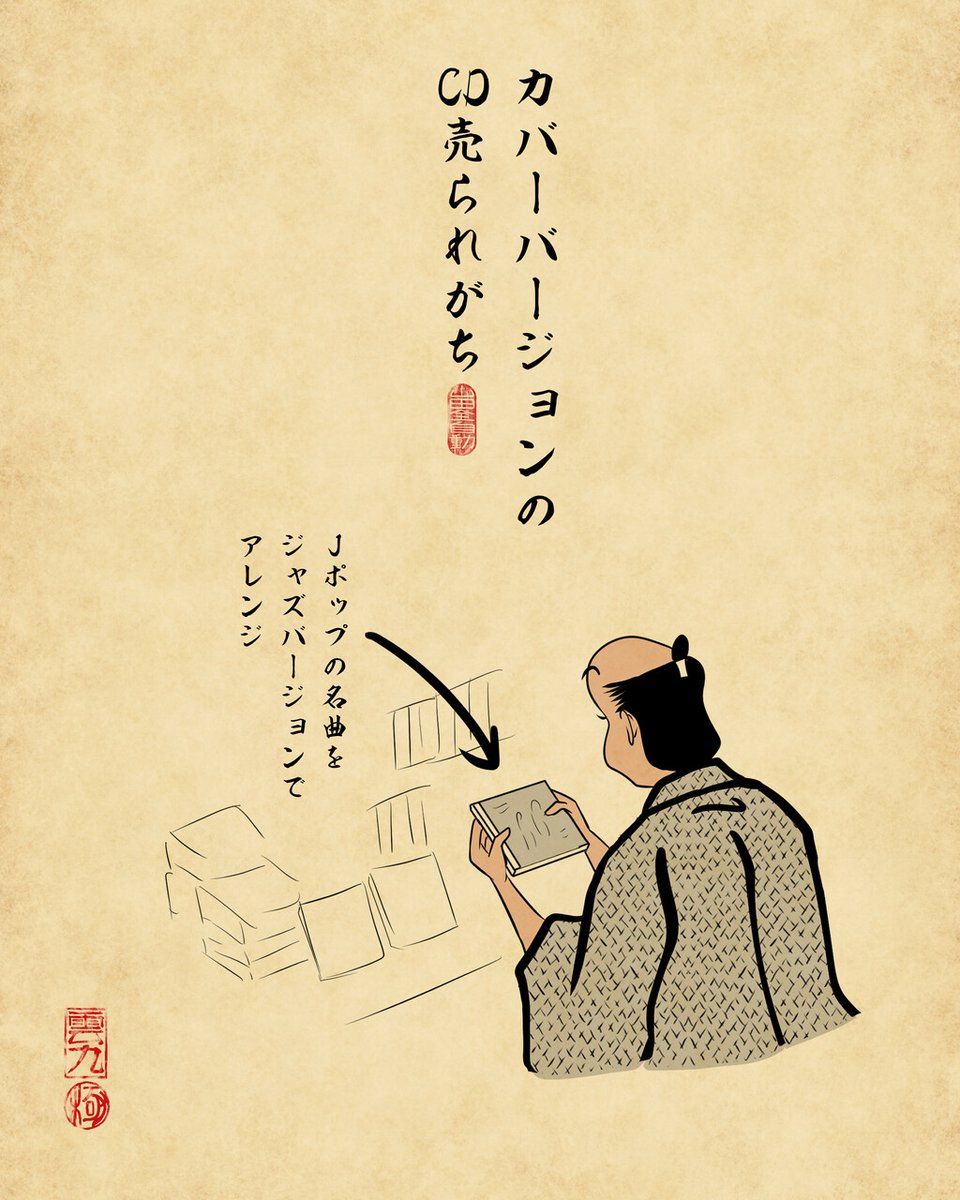 カバーバージョンの
CD売られがち
Jポップの名曲を
ジャズバージョンで
アレンジ